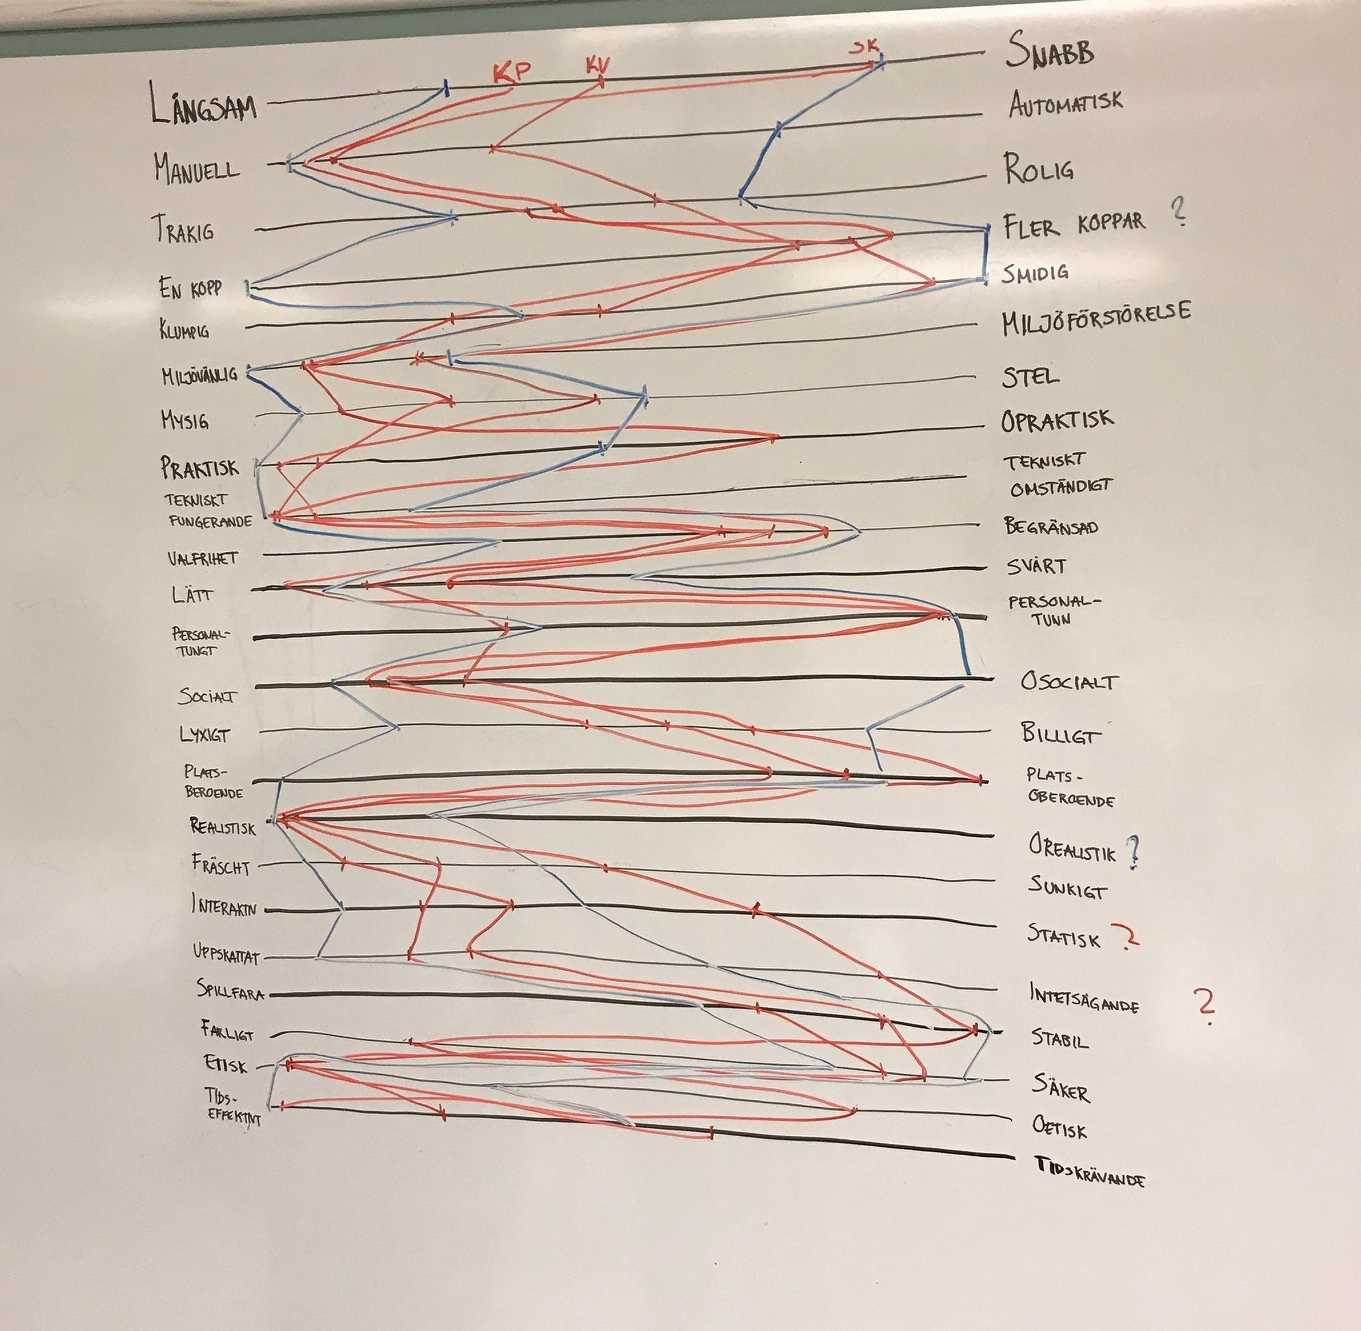 KP KV SK
LÅNGSAM SNABB
MANUELL AUTOMATISK
TRÅKIG ROLIG
EN KOPP FLER KOPPAR ?
KLUMPIG SMIDIG
MILJÖVÄNLIG MILJÖFÖRSTÖRELSE
MYSIG STEL
PRAKTISK OPRAKTISK
TEKNISKT TEKNISKT
FUNGERANDE OMSTÄNDIGT
VALFRIHET BEGRÄNSAD
LÄTT SVÅRT
PERSONAL- PERSONAL-
TUNGT TUNN
SOCIALT OSOCIALT
LYXIGT BILLIGT
PLATS- PLATS-
BEROENDE OBEROENDE
REALISTISK OREALISTIK ?
FRÄSCHT SUNKIGT
INTERAKTIV STATISK ?
UPPSKATTAT INTETSÄGANDE ?
SPILLFARA STABIL
FARLIGT SÄKER
ETISK OETISK
TIDS- TIDSKRÄVANDE
EFFEKTIVT